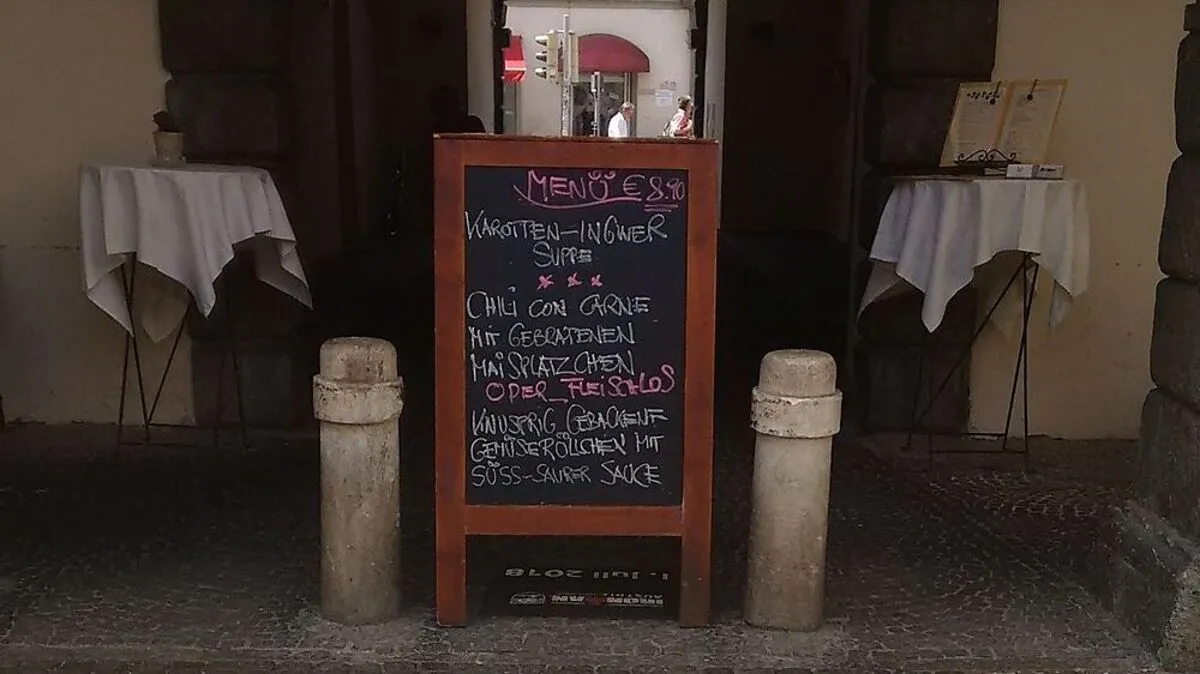 MENÜ € 8.90
KAROTTEN-INGWER
SUPPE
CHILI CON CARNE
MIT GEBRATENEN
MAISPLATZCHEN
ODER FLEISCHLOS
KNUSPRIG GEBACKENE
GEMÜSERÖLLCHEN MIT
SÜSS-SAURER SAUCE
1. Juli 2018
AUSTRIA
IRONMAN